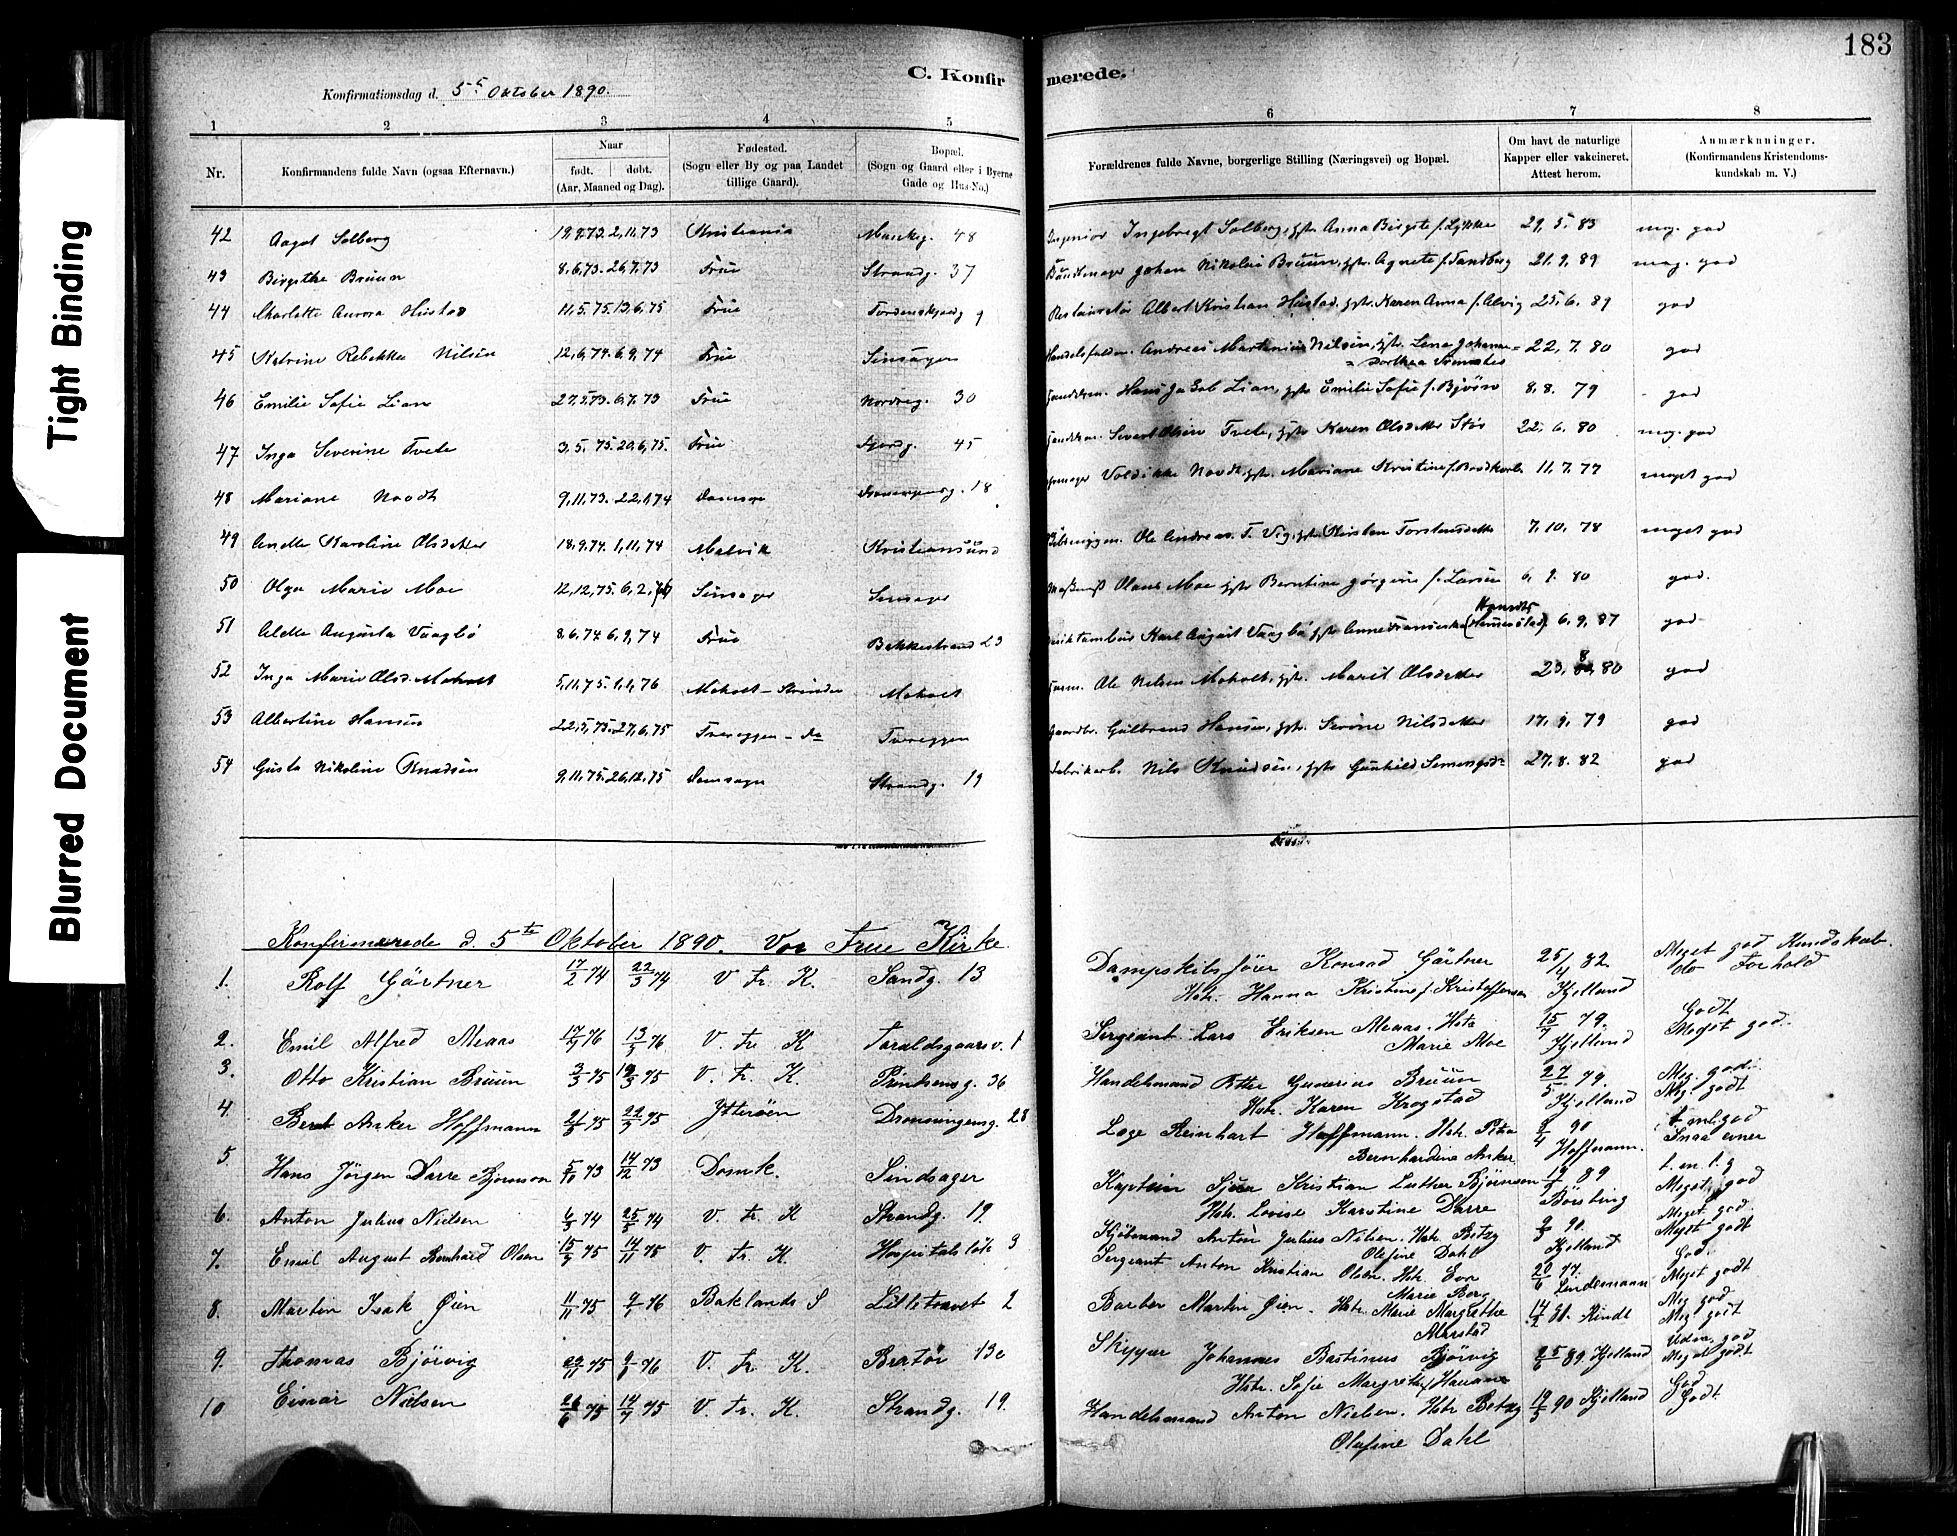 183
C. Konfirmerede.
Konfirmationsdag d. 5te Oktober 1890.
1 2 3 4 5 6 7 8
Nr.
Konfirmandens fulde Navn (ogsaa Efternavn.)
Naar født. døbt. (Aar, Maaned og Dag).
Fødested. (Sogn eller By og paa Landet tillige Gaard).
Bopæl. (Sogn og Gaard eller i Byerne Gade og Hus-No.)
Forældrenes fulde Navne, borgerlige Stilling (Næringsvei) og Bopæl.
Om havt de naturlige Kapper eller vakcineret. Attest herom.
Anmærkninger. (Konfirmandens Kristendomskundskab m. V.)
42 Aagot Solberg 2,11,73 Kristiania Munkeg. 48 Ingeniør Ingebregt Solberg, gste Anna Birgite f. Lykke 29,5,83 meg. god
43 Birgithe Bruun 8,6,73. 26,7,73 Frue Strandg. 37 Buntmager Johan Nikolai Bruun, gste Agnete f. Sandberg 21,9,89 meg. god
44 Charlotte Aurora Hustad 11,5,75. 13,6,75 Frue Tordenskjoldg 9 Restauratør Albert Kristian Hustad, gste Karen Anna f. Alvig 25,6,89 god
45 Katrine Rebekka Nilsen 12,6,74. 6,9,74 Frue Sinsagen Andreas Martinius Nilsen, gste Lena Johanne Dorthea 22,7,80 god
46 Emilie Sofie Lian 6,7,73 Frue Nordreg. 30 Hans Jakob Lian, gste Emilie Sofie f. Bjvörn 8,8,79 god
47 Inga Severine Tvete 3,5,75. 20,6,75. Frue Fjordg. 45 Sivert Olsen Tvete, gste Karen Olsdatter Stös 22,6,80 meg. god
48 Mariane Noodt 9,11,73. 22,1,74 Domsogn Dronningensg. 18 Noodt, gste Mariane Kristine f. Brodkorb 11,7,77 meget god
49 Anette Karoline Olsdatter 18,9,74. 1,11,74 Malvik Kristiansund Ole Andreas T. Vig, gste Kirsten Torstensdatter 7,10,78 meget god
50 Olga Marie Moe 12,12,75. 6,2,76 Sinsager Sinsager Olaus Moe gste Berntine Jörgine f. Larsen 6,9,80 god.
51 Alette Augusta Vaagbö 8,6,74. 6,9,74 Frue Bakkestrand 23 Karl August Vaagbö gste Anne Franciska 6,9,87 god
52 Inga Marie Olsd. Moholt 5,11,75. 1,1,76 Moholt - Strinden Moholt Ole Nilsen Moholt, gste Marit Olsdatter 23,8,80 god
53 Albertine Hansen 22,5,75. 27,6,75 Tvereggen - do Tvereggen Gaardbr. Gulbrand Hansen, gste Serine Nilsdatter 17,9,79 god
54 Gusta Nikoline Knudsen 9,11,75. 26,12,75 Domsogn Strandg. 19 Fabrikarb. Nils Knudsen, gste Gunhild Simonsd. 27,8,82 god
Konfirmerede d. 5te Oktober 1890. Vor Frue Kirke.
1. Rolf Gärtner 17/2 74 22/3 74 V. Fr. K. Sandg. 13 Dampskibsförer Konrad Gärtner 25/4 82 Meget god Kundskab.
Hstr. Hanna Kristine f. Kristoffersen Kjelland do Forhold
2. Emil Alfred Meaas 76 13/3 76 V. Fr. K Taraldsgaardsv. 1 Sergeant Lars Eriksen Meaas. Hstr 15/7 79. Godt
Marie Moe Kjelland Meget god.
3. Otto Kristian Bruun 3/3 75 19/3 75 V. Fr. K. Prindsensg. 36 Handelsmand Petter Gunerius Bruun 27/5 79. Meg. god.
Hstr. Karen Krogstad Kjelland Meg. godt
4. Bernt Anker Hoffmann 21/3 75 75 Ytteröen Dronningensg. 28 Læge Reinhart Hoffmann. Hstr. Petra 8/4 90
Bernhardine Anker Hoffmann.
5. Hans Jörgen Darre Bjørnson 5/10 73 14/12 73 Domk. Sindsager Kaptein Kristian Luther Björnson 89
Hstr. Lovise Karstine Darre Börsting Meget god
6. Anton Julius Nielsen 6/3 74 25/5 74 V. Fr. K Strandg. 19. Kjöbmand Anton Julius Nilsen. Hstr. Betzy 90 Meget god.
Olafine Dahl Kjelland Meget godt
7. Emil August Bernhard Olsen 15/9 75 14/11 75 V. Fr. K. Hospitalslökk 9 Sergeant Anton Kristian Olsen. Hstr. Eva 20/6 77. God.
Marie Berg Lindemann Meget godt
8. Martin Isak Øien 11/11 75 76 Baklands S Lilletorvet 2 Barber Martin Øien. Hstr. Marie Margrethe 14/2 90. Rinde Meg god
Meg godt
9. Thomas Bjørvig 75 76 V. Fr. K. Brattör 13c Skipper Johannes Bastinus Bjørvig 25/6 89 Kjelland Udm. god
Hstr. Sofie Margrethe Meget godt
10 Einar Nielsen 26/6 75 14/7 75 V. Fr. K. Strandg. 19. Handelsmand Anton Nielsen. Hstr Betzy 19/3 90 Kjelland God
Olafine Dahl Godt
Tight Binding
Blurred Document